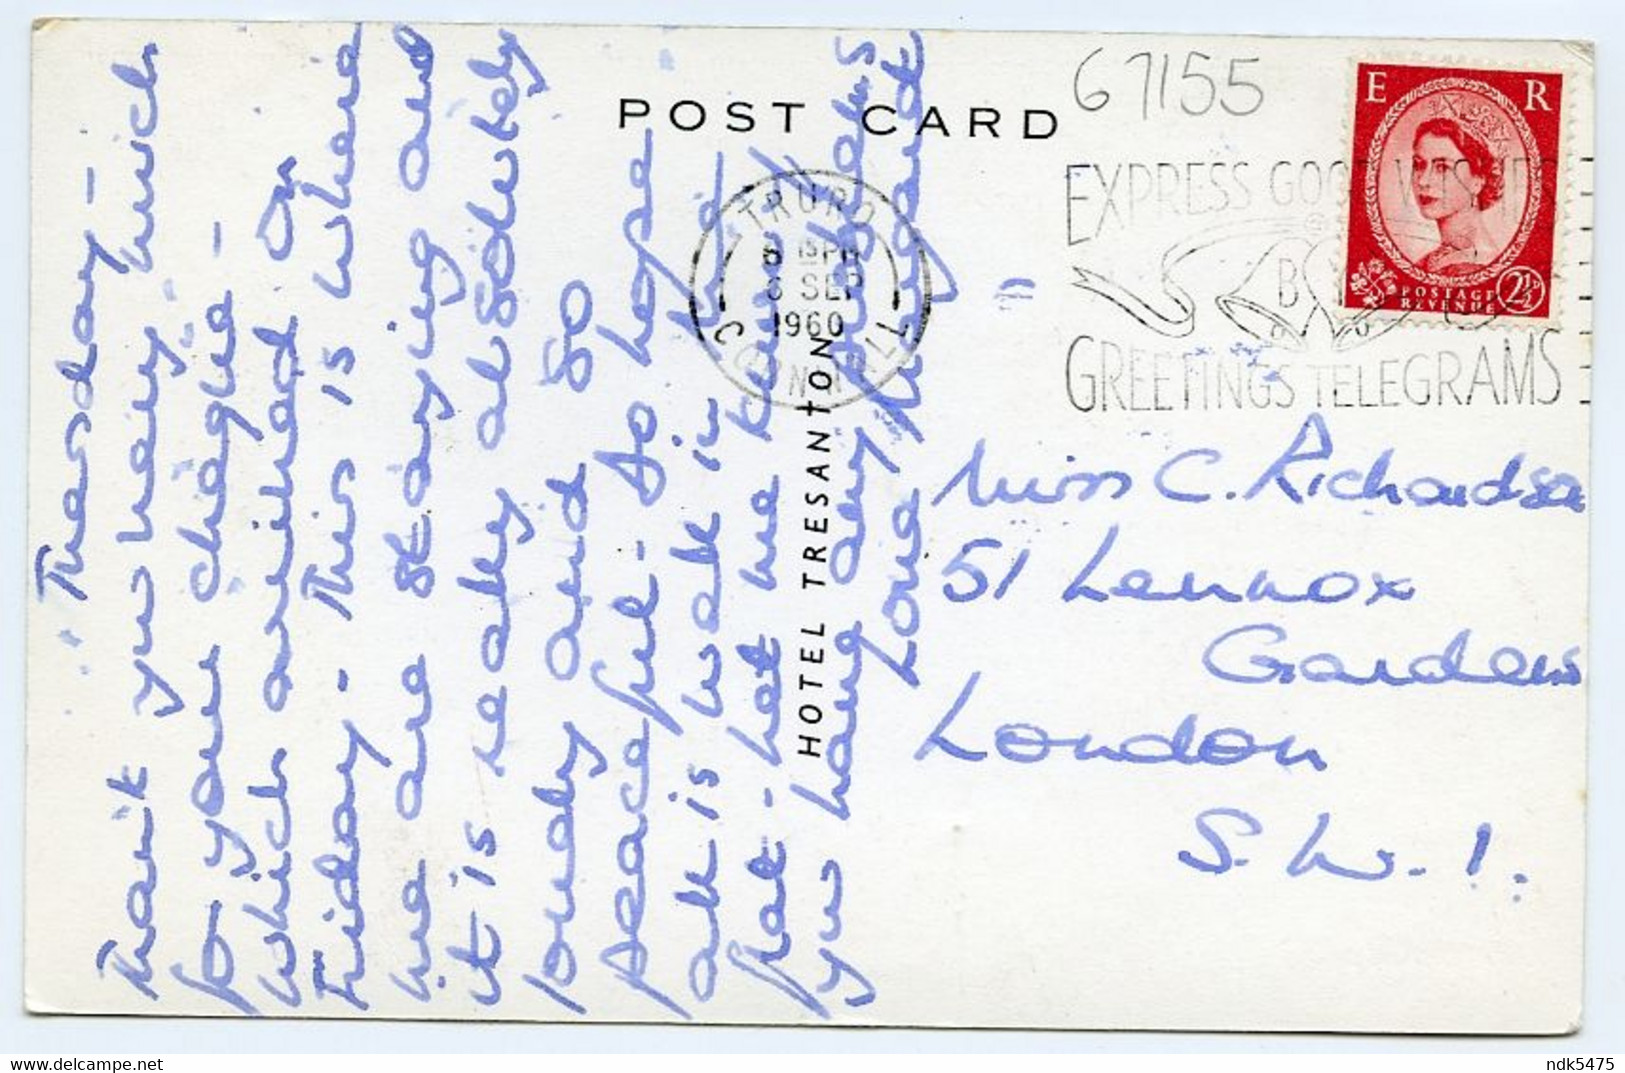 POST CARD
67155
E R
POSTAGE
REVENUE
2½D
EXPRESS GOOD WISHES
BY
GREETINGS TELEGRAMS
TRURO
6 15 PM
6 SEP
1960
CORNWALL
HOTEL TRESANTON
=
Thursday -
Thank you very much
for your cheque -
which arrived on
Friday - This is where
we are staying and
it is really absolutely
lovely and so
peaceful - Do hope
all is well in the
flat - Let me know if
you have any problems
Love Margaret
Miss C. Richardson
51 Lennox
Gardens
London
S.W.1.
ndk5475